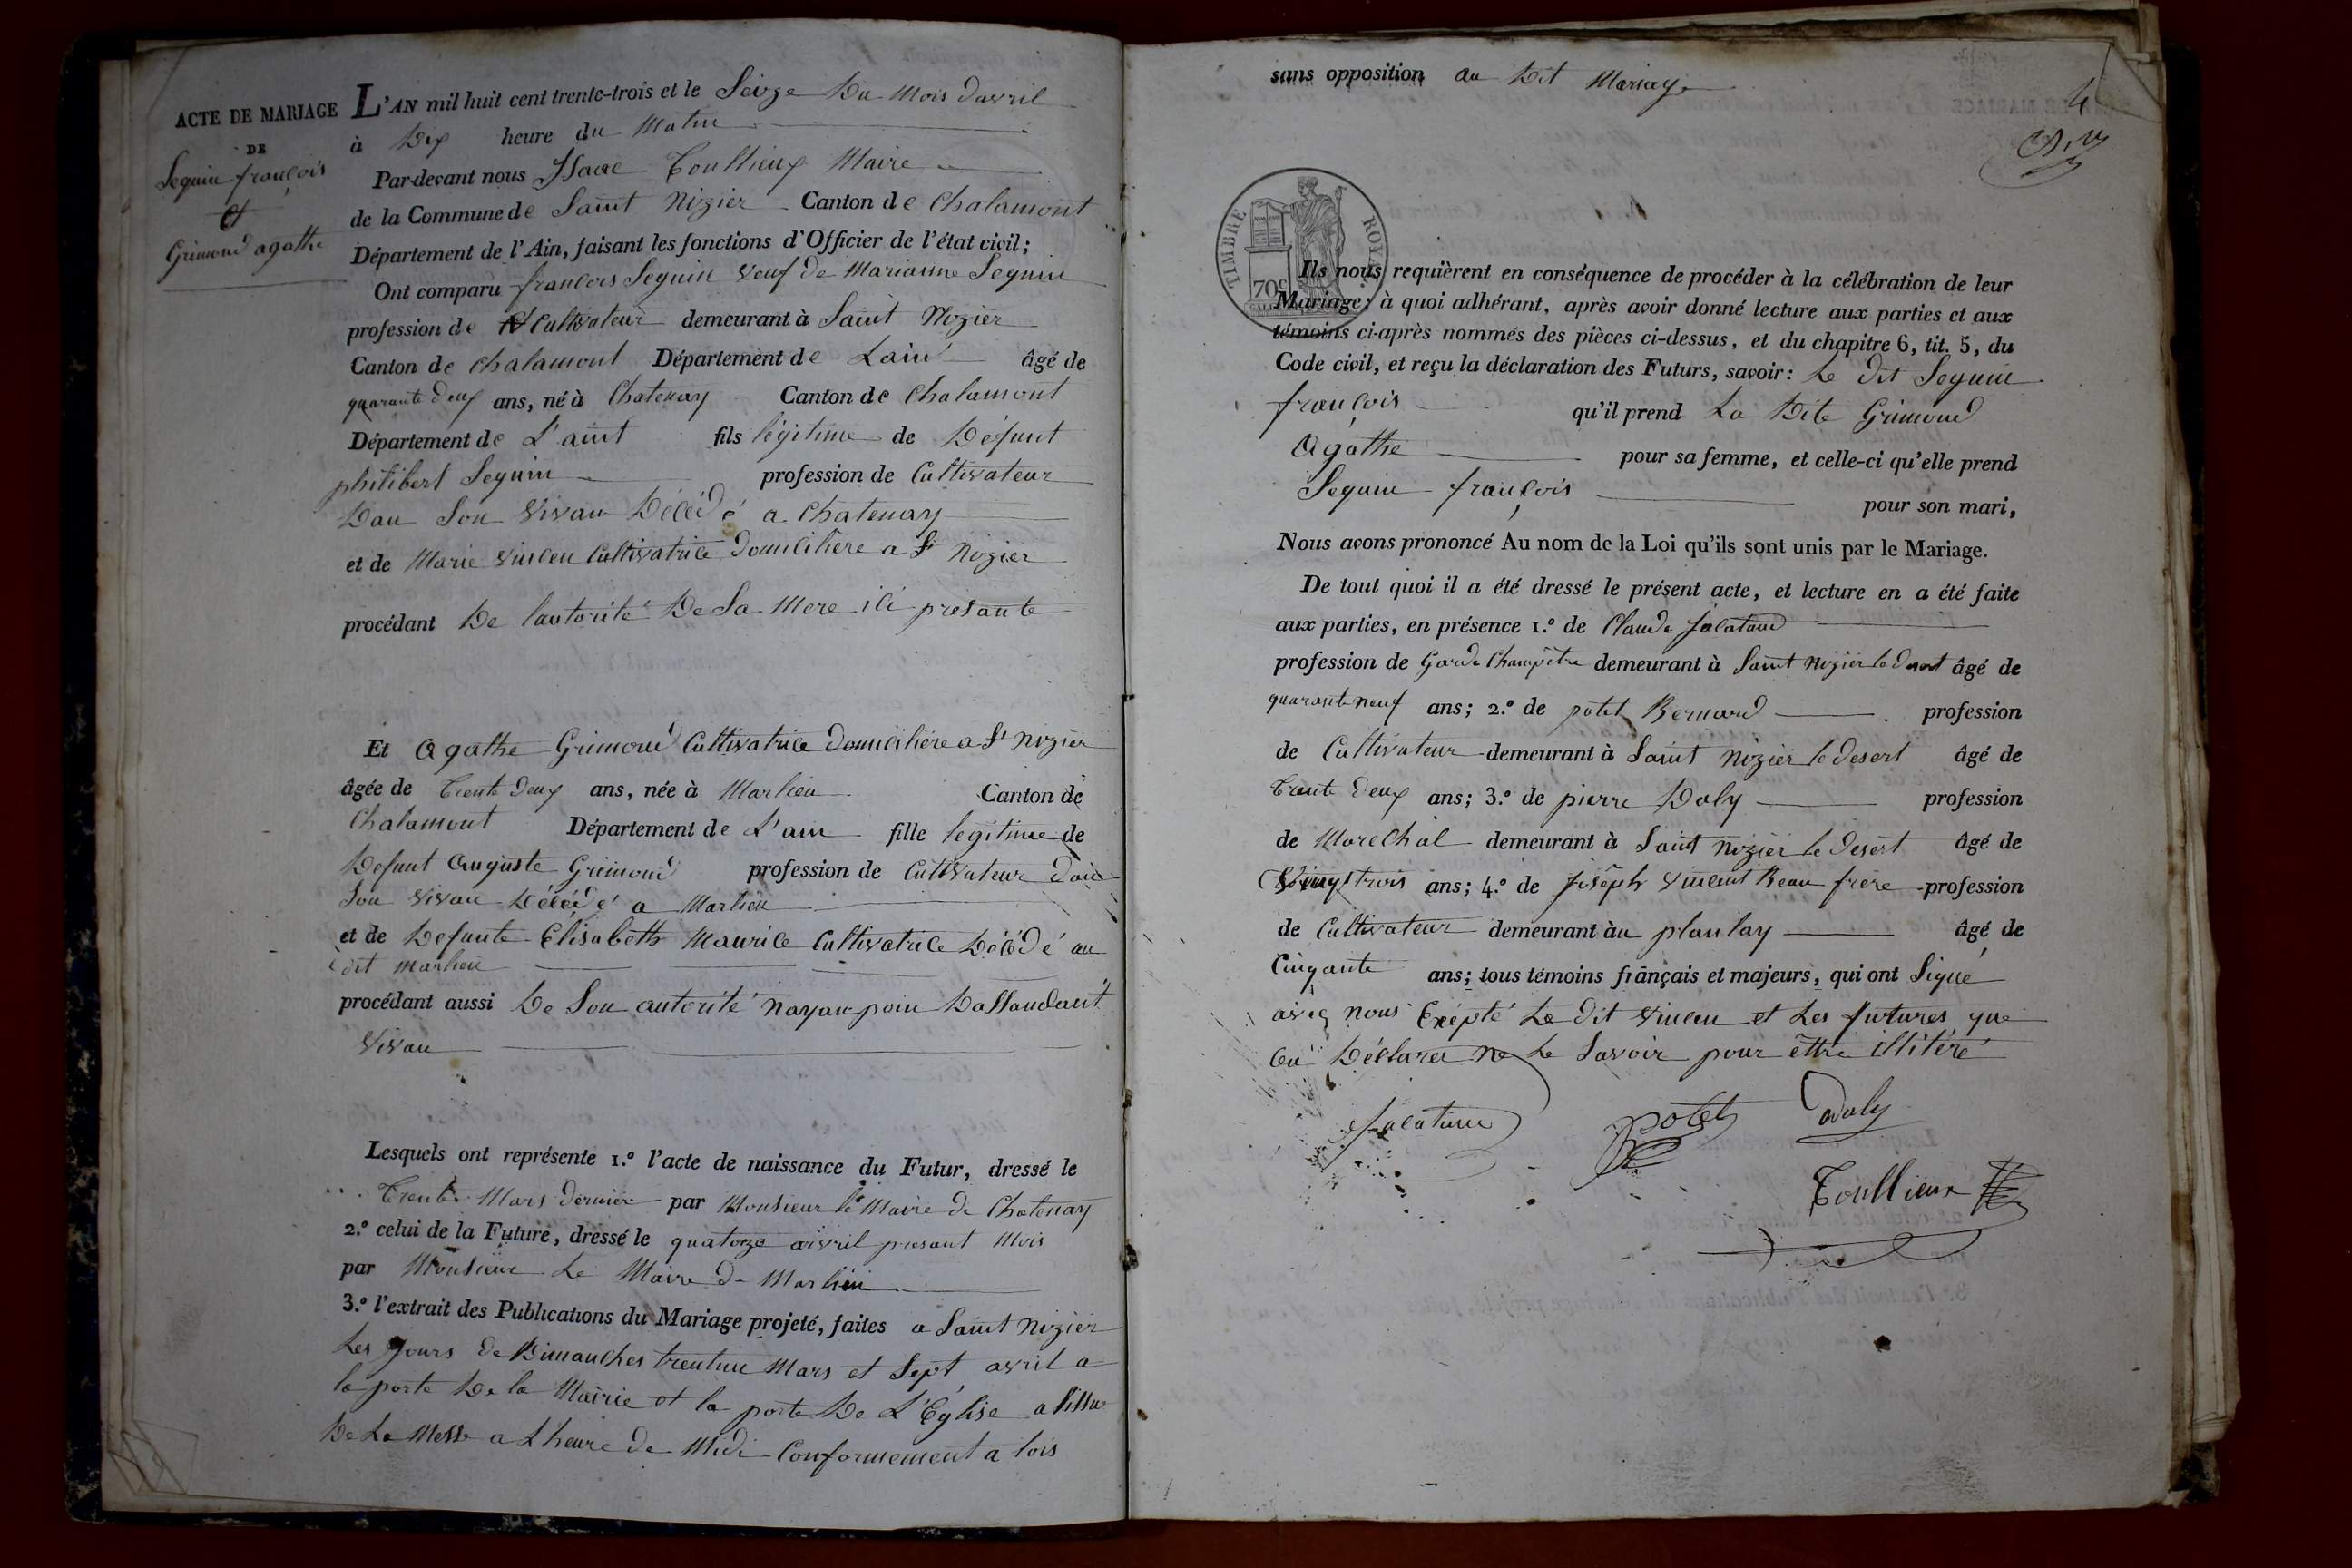 ACTE DE MARIAGE
DE
Seguin françois
et
Grimond agathe
L'AN mil huit cent trente-trois et le Seize Du Mois davril
à Dix heure du Matin
Par-devant nous Isaac Toullieux Maire
de la Commune de Saint Nizier Canton de Chalamont
Département de l'Ain, faisant les fonctions d'Officier de l'état civil;
Ont comparu françois Seguin veuf de Marianne Seguin
profession de Cultivateur demeurant à Saint Nizier
Canton de Chalamont Département de Lain âgé de
quarante deux ans, né à Chatenay Canton de Chalamont
Département de L'aint fils légitime de Défunt
philibert Seguin profession de Cultivateur
Dan Son vivan Décédé a Chatenay
et de Marie vincen Cultivatrice Domicilière a St Nizier
procédant De lautorité De Sa Mere ici presante
Et Agathe Grimond Cultivatrice domicilière a St Nizier
âgée de trente deux ans, née à Marlieu Canton de
Chalamont Département de L'ain fille legitime de
Defunt Auguste Grimond profession de Cultivateur dan
Son vivan Décédé a Marlieu
et de Defunte Elisabeth Maurice Cultivatrice Décédé au
dit Marlieu
procédant aussi De Son autorité nayan poin Dassandant
vivan
Lesquels ont représente 1.º l'acte de naissance du Futur, dressé le
trente Mars dernier par Monsieur le Maire de Chatenay
2.º celui de la Future, dressé le quatorze avril presant Mois
par Monsieur Le Maire de Marlieu
3.º l'extrait des Publications du Mariage projeté, faites a Saint Nizier
Les jours de Dimanches trentun Mars et Sept avril a
la porte De la Mairie et la porte De L'Eglise a lissu
De La Messe a Lheure de Midi Conformement a lois
sans opposition au Dit Mariage
4
TIMBRE ROYAL
70c
Ils nous requièrent en conséquence de procéder à la célébration de leur
Mariage; à quoi adhérant, après avoir donné lecture aux parties et aux
témoins ci-après nommés des pièces ci-dessus, et du chapitre 6, tit. 5, du
Code civil, et reçu la déclaration des Futurs, savoir: Le Dit Seguin
françois qu'il prend La Dite Grimond
Agathe pour sa femme, et celle-ci qu'elle prend
Seguin françois pour son mari,
Nous avons prononcé Au nom de la Loi qu'ils sont unis par le Mariage.
De tout quoi il a été dressé le présent acte, et lecture en a été faite
aux parties, en présence 1.º de Claude Jacataud
profession de Garde Champêtre demeurant à Saint Nizier le desert âgé de
quarante neuf ans; 2.º de potet Bernard profession
de Cultivateur demeurant à Saint Nizier le desert âgé de
trente deux ans; 3.º de pierre Daly profession
de Marechal demeurant à Saint Nizier le desert âgé de
vingt trois ans; 4.º de joseph vincent Beau frere profession
de Cultivateur demeurant àu plantay âgé de
Cinqante ans; tous témoins français et majeurs, qui ont Signé
avec nous Exepté Le Dit vincen et Les futures que
on Déclarer ne Le Savoir pour être illitéré
potet Daly
Toullieux